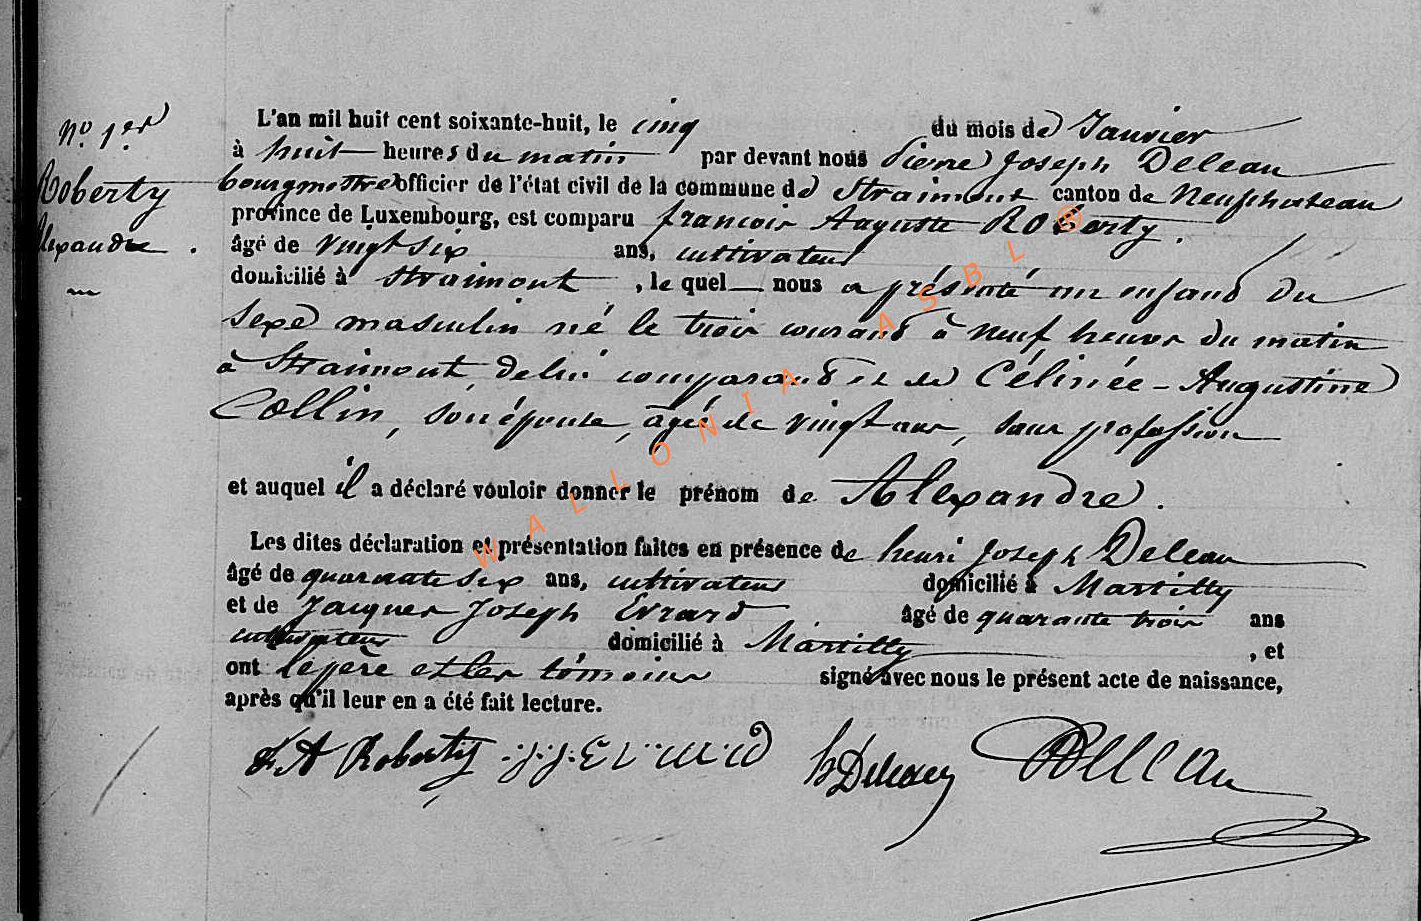 N° 1er
Roberty
Alexandre.
L'an mil huit cent soixante-huit, le cinq du mois de Janvier
à huit heures du matin par devant nous Pierre Joseph Deleau
bourgmestre officier de l'état civil de la commune de Straimont canton de Neufchateau
province de Luxembourg, est comparu francois Auguste Roberty.
âgé de vingt six ans, cultivateur
domicilié à Straimont, le quel nous a présenté un enfant du
sexe masculin né le trois courant à neuf heures du matin
à Straimont, de lui comparant et de Célinée-Augustine
Collin, son épouse, agée de vingt ans, sans profession
et auquel il a déclaré vouloir donner le prénom de Alexandre.
Les dites déclaration et présentation faites en présence de henri Joseph Deleau
âgé de quarante six ans, cultivateur domicilié à Martilly
et de Jacques Joseph Evrard âgé de quarante trois ans
cultivateur domicilié à Martilly, et
ont le père et les témoins signé avec nous le présent acte de naissance,
après qu'il leur en a été fait lecture.
F. A Roberty J. J. Evrard h Deleau Deleau
WALLONIA ASBL ®